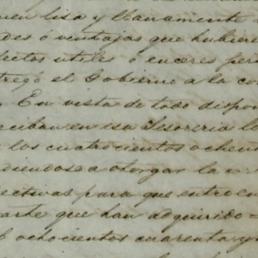 uen lisa y llanamente
des ó ventajas que hubiere
fectos utiles ó enceres per
tregó el Gobierno a la co
En vista de todo dispon
ciban en esa Tesoreria lo
los cuatrocientos ochen
diendose a otorgar la
ectivas para que entre en
arte que han adquirido
ochocientos cuarenta y